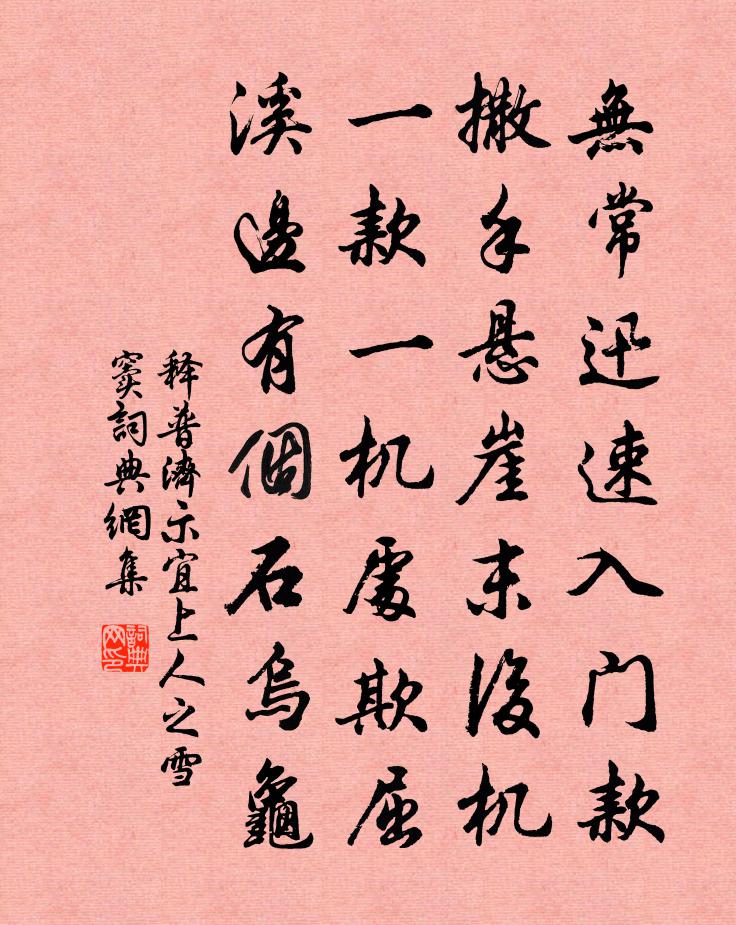 無常迅速入门款
撒手悬崖末後机
一款一机處欺屈
溪邊有個石烏龜
释普濟示宜上人之雪
窦詞典網集
詞典
网印